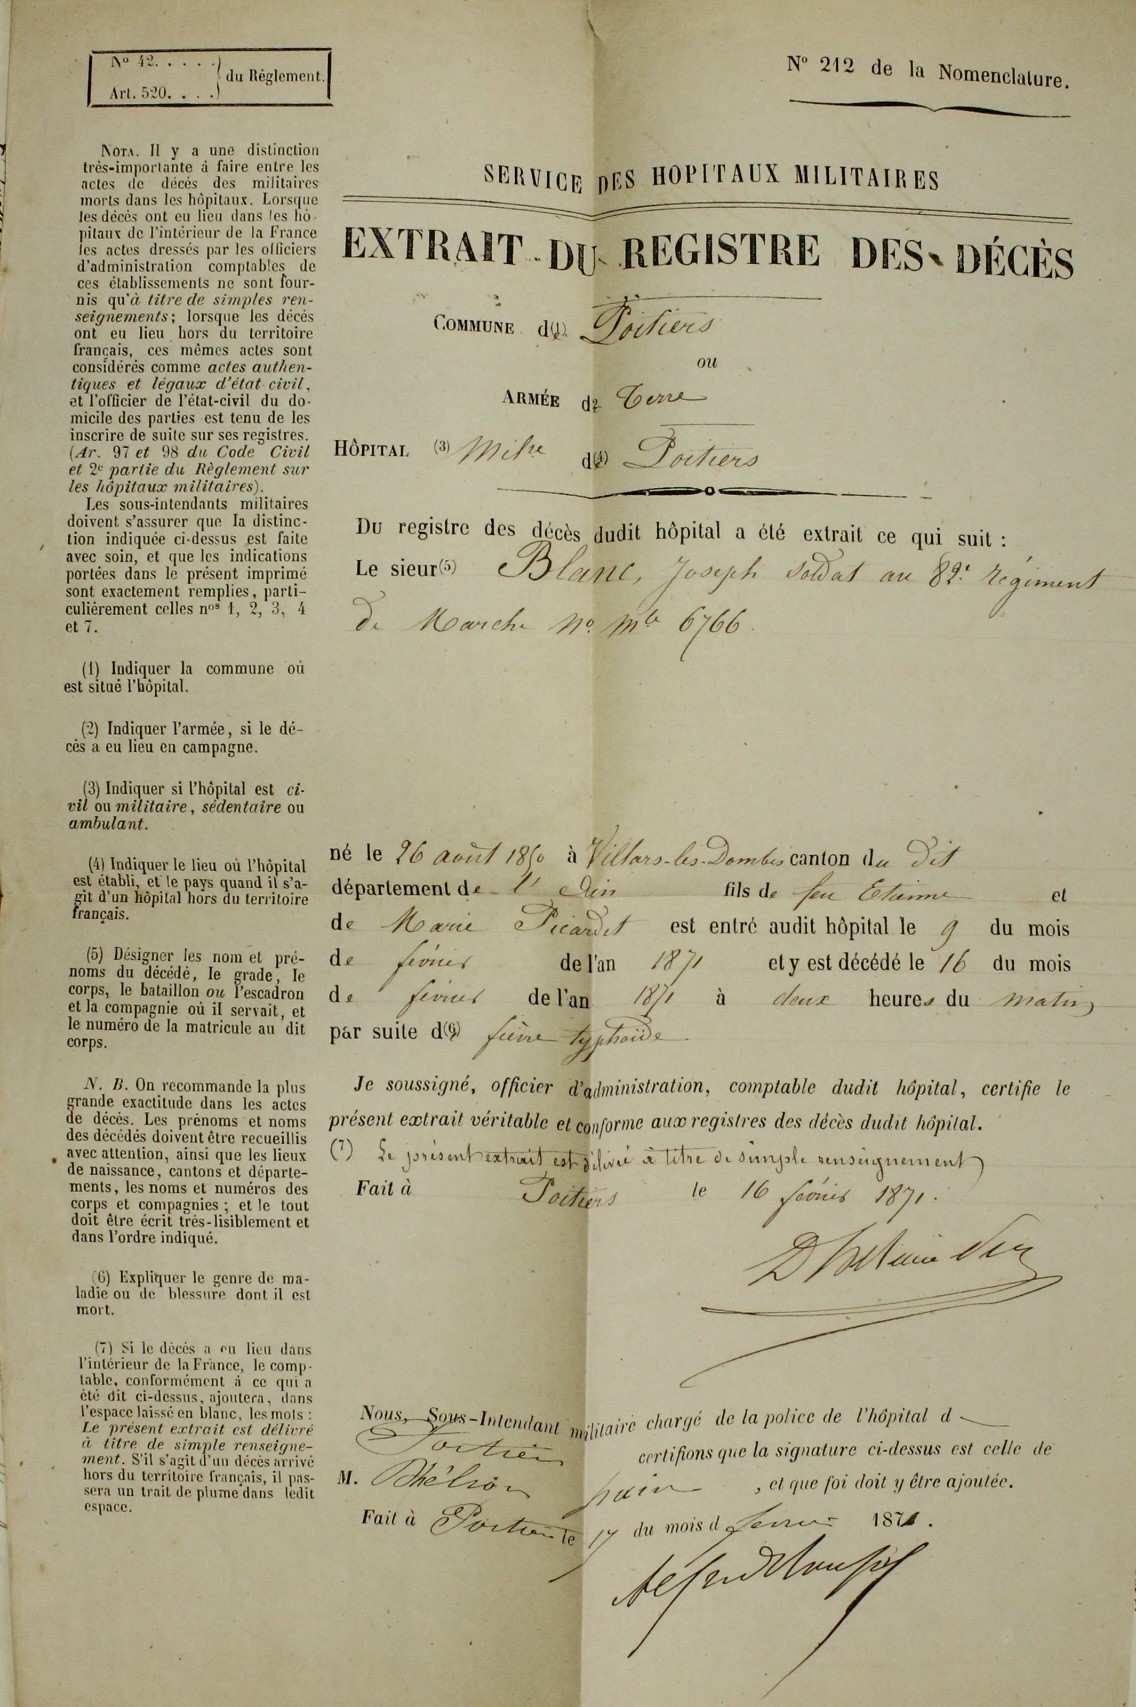 No 42. . . . .
Art. 520. . . .
du Réglement.
No 212 de la Nomenclature.
NOTA. Il y a une distinction
très-importante à faire entre les
actes de décès des militaires
morts dans les hôpitaux. Lorsque
les décès ont eu lieu dans les hô-
pitaux de l'intérieur de la France
les actes dressés par les officiers
d'administration comptables de
ces établissements ne sont four-
nis qu'à titre de simples ren-
seignements; lorsque les décès
ont eu lieu hors du territoire
français, ces mêmes actes sont
considérés comme actes authen-
tiques et légaux d'état civil,
et l'officier de l'état-civil du do-
micile des parties est tenu de les
inscrire de suite sur ses registres.
(Ar. 97 et 98 du Code Civil
et 2e partie du Règlement sur
les hôpitaux militaires).
Les sous-intendants militaires
doivent s'assurer que la distinc-
tion indiquée ci-dessus est faite
avec soin, et que les indications
portées dans le présent imprimé
sont exactement remplies, parti-
culièrement celles nos 1, 2, 3, 4
et 7.
(1) Indiquer la commune où
est situé l'hôpital.
(2) Indiquer l'armée, si le dé-
cès a eu lieu en campagne.
(3) Indiquer si l'hôpital est ci-
vil ou militaire, sédentaire ou
ambulant.
(4) Indiquer le lieu où l'hôpital
est établi, et le pays quand il s'a-
git d'un hôpital hors du territoire
français.
(5) Désigner les nom et pré-
noms du décédé, le grade, le
corps, le bataillon ou l'escadron
et la compagnie où il servait, et
le numéro de la matricule au dit
corps.
N. B. On recommande la plus
grande exactitude dans les actes
de décès. Les prénoms et noms
des décédés doivent être recueillis
avec attention, ainsi que les lieux
de naissance, cantons et départe-
ments, les noms et numéros des
corps et compagnies; et le tout
doit être écrit très-lisiblement et
dans l'ordre indiqué.
(6) Expliquer le genre de ma-
ladie ou de blessure dont il est
mort.
(7) Si le décès a eu lieu dans
l'intérieur de la France, le comp-
table, conformément à ce qui a
été dit ci-dessus, ajoutera, dans
l'espace laissé en blanc, les mots:
Le présent extrait est délivré
à titre de simple renseigne-
ment. S'il s'agit d'un décès arrivé
hors du territoire français, il pas-
sera un trait de plume dans ledit
espace.
SERVICE DES HOPITAUX MILITAIRES
EXTRAIT DU REGISTRE DES DÉCÈS
COMMUNE d(1) Poitiers
ou
ARMÉE d2 Terre
HÔPITAL (3) Milre d(4) Poitiers
Du registre des décès dudit hôpital a été extrait ce qui suit :
Le sieur(5) Blanc, Joseph soldat au 82e régiment
de Marche No Mle 6766.
né le 26 août 1850 à Villars-les-Dombes canton du dit
département de l'Ain fils de feu Etienne et
de Marie Picardet est entré audit hôpital le 9 du mois
de février de l'an 1871 et y est décédé le 16 du mois
de février de l'an 1871 à deux heures du matin
par suite d(6) fièvre typhoïde.
Je soussigné, officier d'administration, comptable dudit hôpital, certifie le
présent extrait véritable et conforme aux registres des décès dudit hôpital.
(7) Le présent extrait est délivré à titre de simple renseignement
Fait à Poitiers le 16 février 1871.
Nous, Sous-Intendant militaire chargé de la police de l'hôpital d
Poitiers certifions que la signature ci-dessus est celle de
M. , et que foi doit y être ajoutée.
Fait à Poitiers le 17 du mois d février 1871.